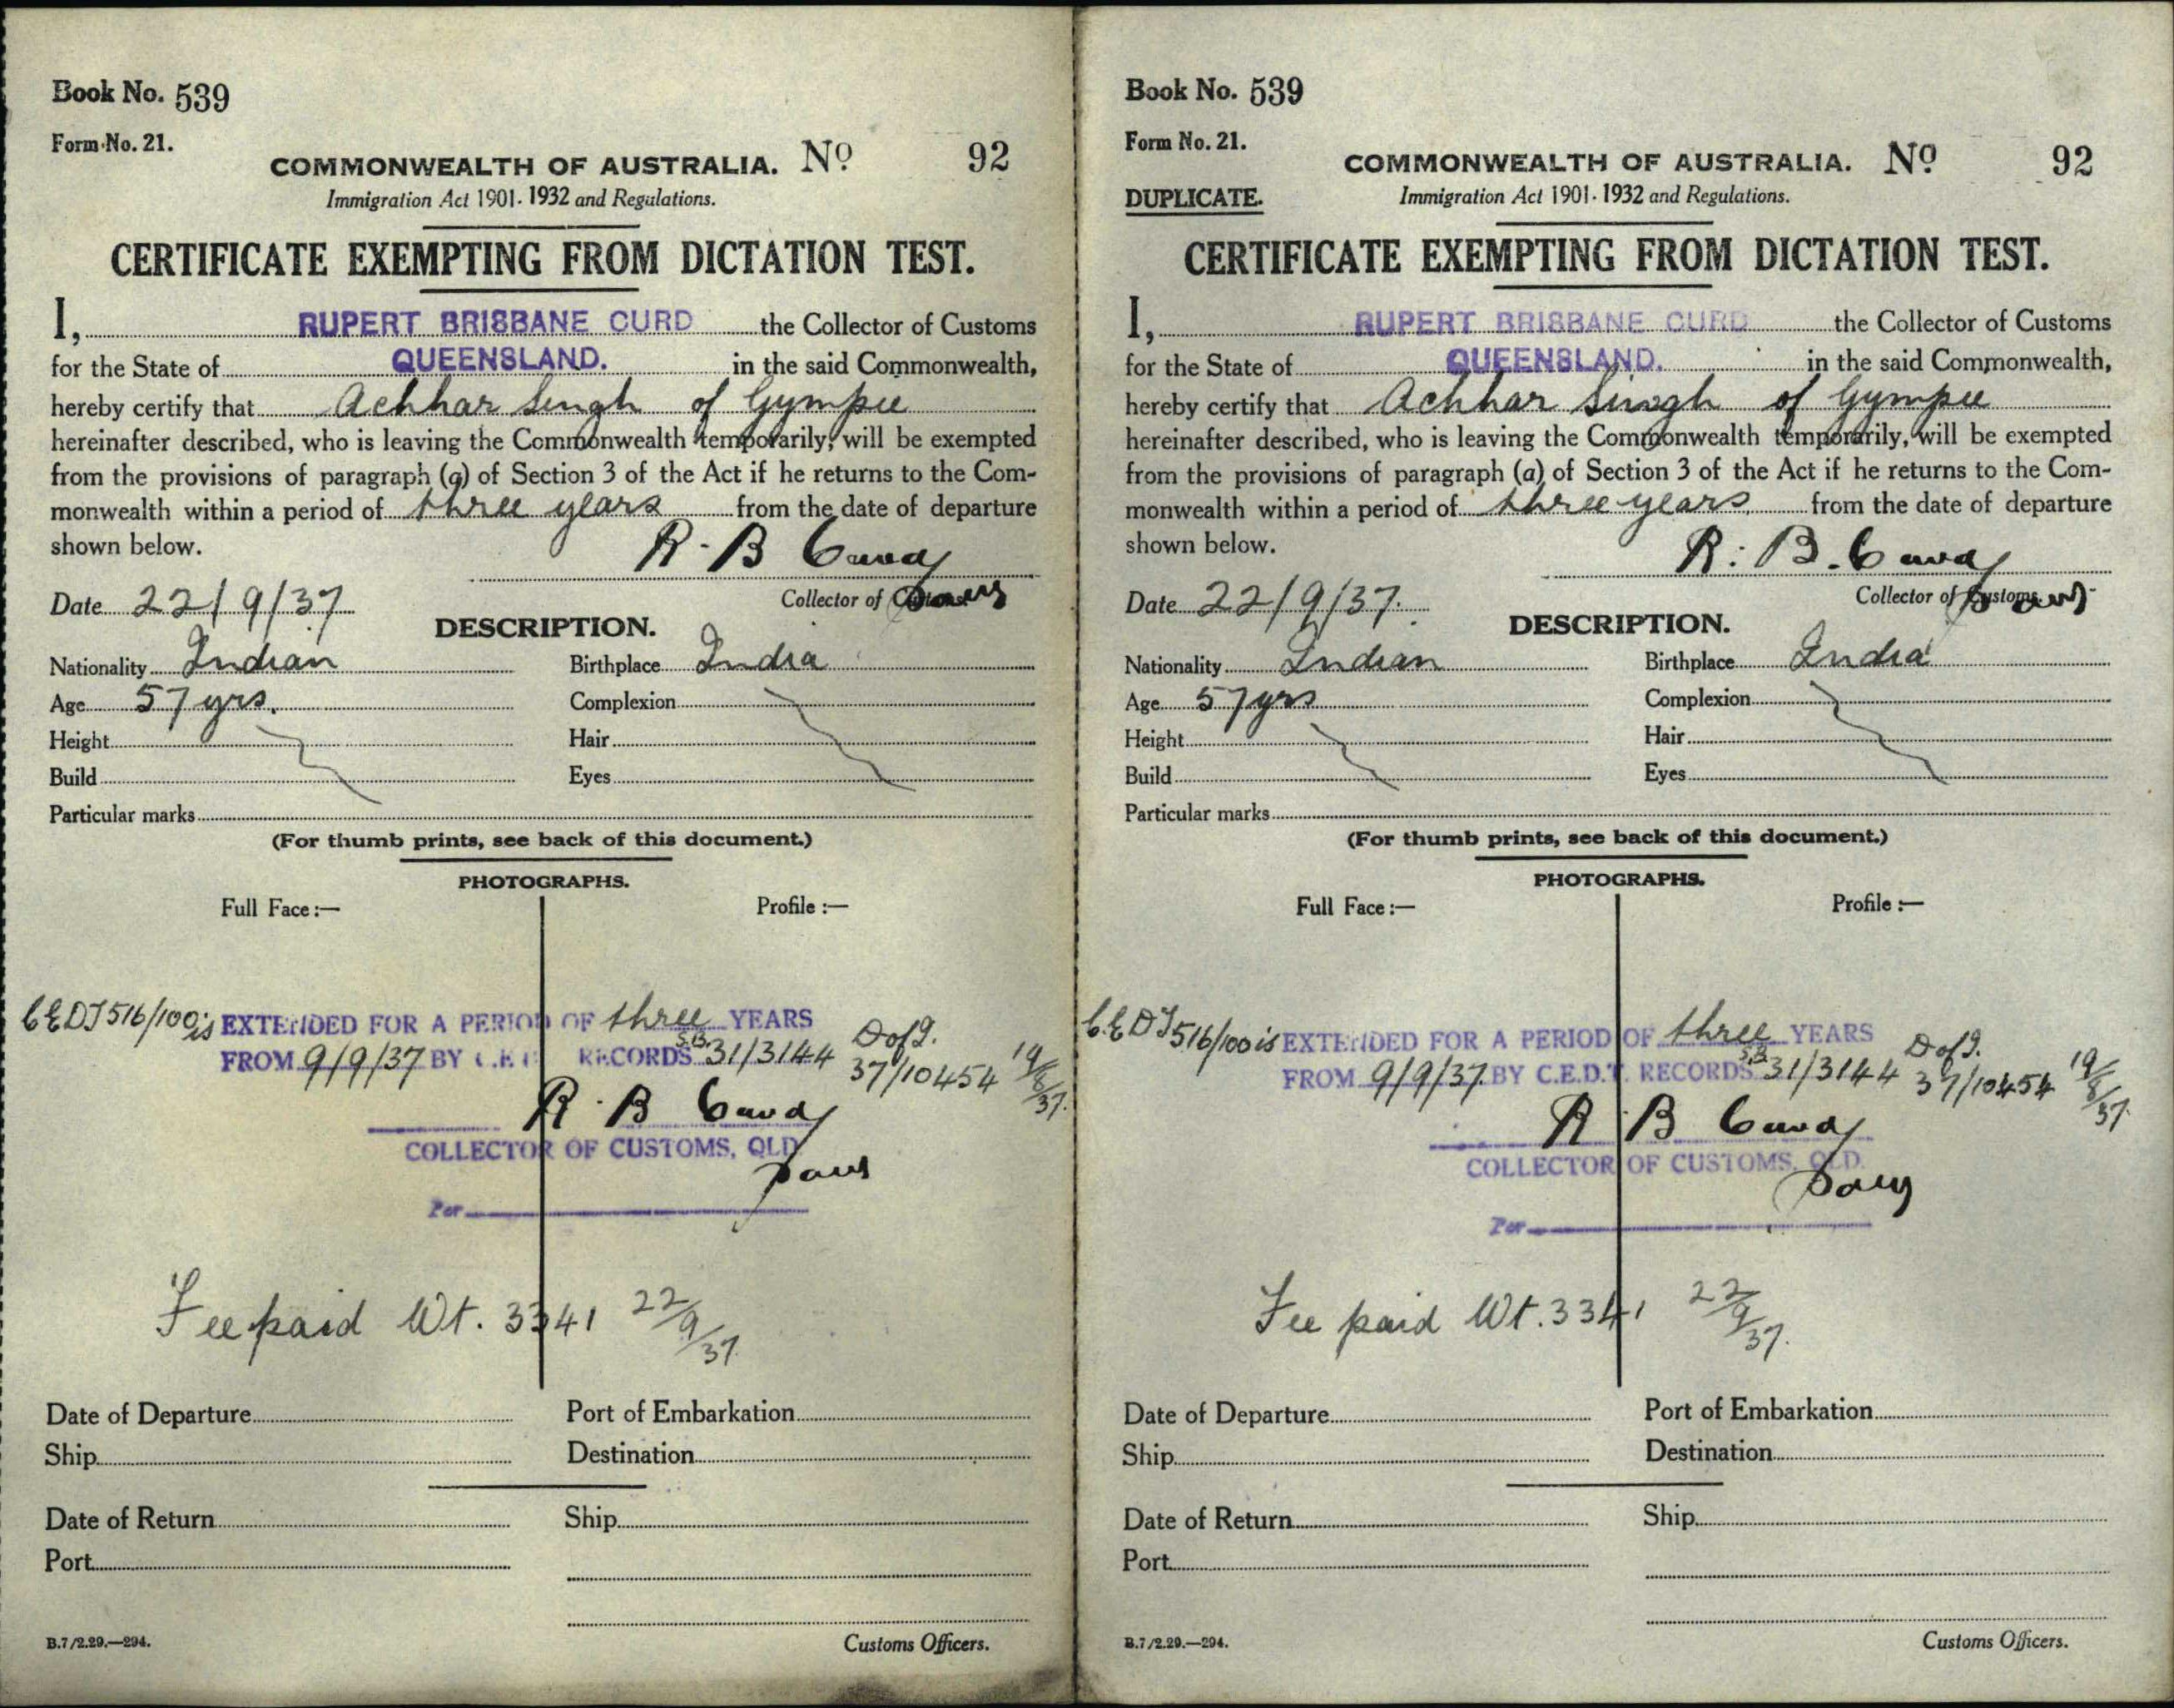 Book No. 539
Form No. 21.
COMMONWEALTH OF AUSTRALIA. No 92
Immigration Act 1901-1932 and Regulations.
CERTIFICATE EXEMPTING FROM DICTATION TEST.
I, RUPERT BRISBANE CURD the Collector of Customs
for the State of QUEENSLAND. in the said Commonwealth,
hereby certify that Achhar Singh of Gympie
hereinafter described, who is leaving the Commonwealth temporarily, will be exempted
from the provisions of paragraph (a) of Section 3 of the Act if he returns to the Com-
monwealth within a period of three years from the date of departure
shown below.
R. B Curd
Date 22/9/37 Collector of Customs
DESCRIPTION.
Nationality Indian Birthplace India
Age 57 yrs. Complexion
Height Hair
Build Eyes
Particular marks
(For thumb prints, see back of this document.)
PHOTOGRAPHS.
Full Face:— Profile:—
CEDT 516/100 is EXTENDED FOR A PERIOD OF three YEARS
FROM 9/9/37 BY C.E. RECORDS S.B. 31/3144 D of I. 37/10454 19/8/37.
R. B Curd
COLLECTOR OF CUSTOMS, QLD
Per
Fee paid Wt. 3341 22/9/37
Date of Departure Port of Embarkation
Ship Destination
Date of Return Ship
Port
B.7/2.29.—294. Customs Officers.
Book No. 539
Form No. 21.
COMMONWEALTH OF AUSTRALIA. No 92
DUPLICATE. Immigration Act 1901-1932 and Regulations.
CERTIFICATE EXEMPTING FROM DICTATION TEST.
I, RUPERT BRISBANE CURD the Collector of Customs
for the State of QUEENSLAND. in the said Commonwealth,
hereby certify that Achhar Singh of Gympie
hereinafter described, who is leaving the Commonwealth temporarily, will be exempted
from the provisions of paragraph (a) of Section 3 of the Act if he returns to the Com-
monwealth within a period of three years from the date of departure
shown below.
R. B. Curd
Date 22/9/37. Collector of Customs
DESCRIPTION.
Nationality Indian Birthplace India
Age 57 yrs Complexion
Height Hair
Build Eyes
Particular marks
(For thumb prints, see back of this document.)
PHOTOGRAPHS.
Full Face:— Profile:—
C.E.DT 516/100 is EXTENDED FOR A PERIOD OF three YEARS
FROM 9/9/37 BY C.E.D.T. RECORDS S.B. 31/3144 D of I. 37/10454 19/8/37.
R B Curd
COLLECTOR OF CUSTOMS, QLD.
Per
Fee paid Wt. 3341 22/9/37.
Date of Departure Port of Embarkation
Ship Destination
Date of Return Ship
Port
B.7/2.29.—294. Customs Officers.